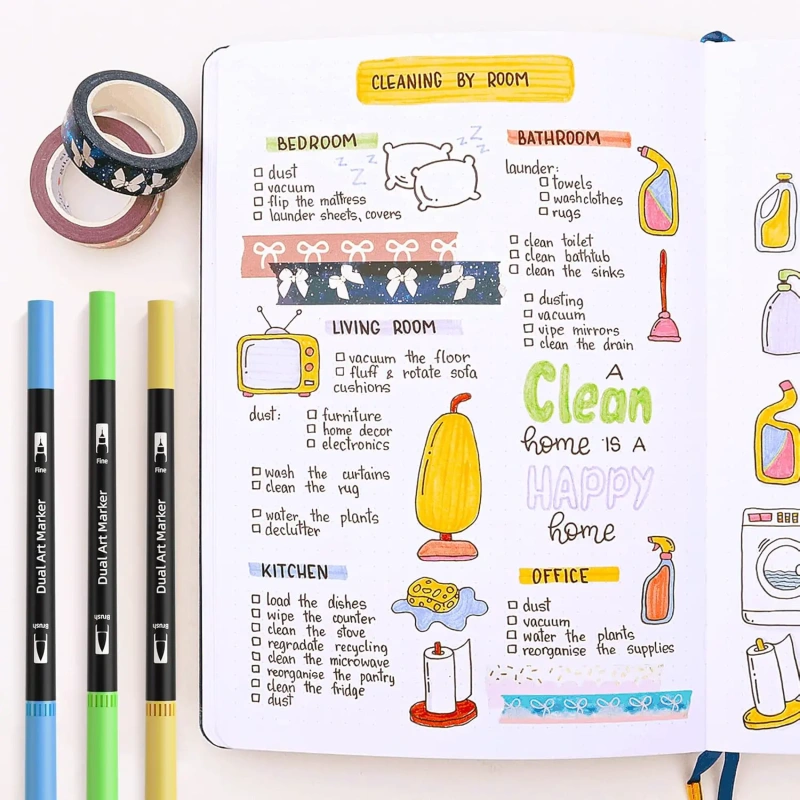 CLEANING BY ROOM
BEDROOM
dust
vacuum
flip the mattress
launder sheets, covers
z z z
z z z
LIVING ROOM
vacuum the floor
fluff & rotate sofa
cushions
dust:
furniture
home decor
electronics
wash the curtains
clean the rug
water the plants
declutter
KITCHEN
load the dishes
wipe the counter
clean the stove
regradate recycling
clean the microwave
reorganise the pantry
clean the fridge
dust
BATHROOM
launder:
towels
washclothes
rugs
clean toilet
clean bathtub
clean the sinks
dusting
vacuum
vipe mirrors
clean the drain
A
Clean
home IS A
HAPPY
home
OFFICE
dust
vacuum
water the plants
reorganise the supplies
Fine
Dual Art Marker
Brush
Fine
Dual Art Marker
Brush
Fine
Dual Art Marker
Brush